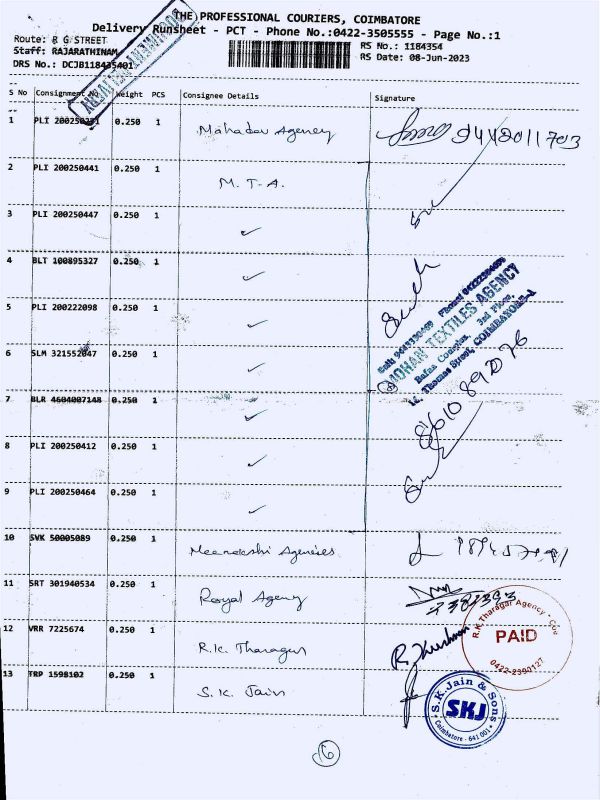 THE PROFESSIONAL COURIERS, COIMBATORE
Delivery Runsheet - PCT - Phone No.:0422-3505555 - Page No.:1
Route: R G STREET
RS No.: 1184354
Staff: RAJARATHINAM
RS Date: 08-Jun-2023
DRS No.: DCJB118435401
S No Consignment No Weight PCS Consignee Details Signature
1 PLI 0.250 1 Mahadav Agency
2 PLI 200250441 0.250 1 M.T.A.
3 PLI 200250447 0.250 1 ✓
4 BLT 100895327 0.250 1 ✓
5 PLI 200222098 0.250 1 ✓
6 SLM 321552047 0.250 1 ✓
7 BLR 4604007148 0.250 1 ✓
8 PLI 200250412 0.250 1 ✓
9 PLI 200250464 0.250 1 ✓
MOHAN TEXTILES AGENCY
3rd Floor,
14, Thomas Street, COIMBATORE-1
8610 892076
10 SVK 50005089 0.250 1 Meenakshi Agencies
11 SRT 301940534 0.250 1 Royal Agency
12 VRR 7225674 0.250 1 R.K. Tharagur
R. Krishnan
R.K. Tharagar Agency • Cbe
PAID
0422-2390127
13 TRP 1598102 0.250 1 S.K. Jain
S.K. Jain & Sons
SKJ
Coimbatore - 641 001
6